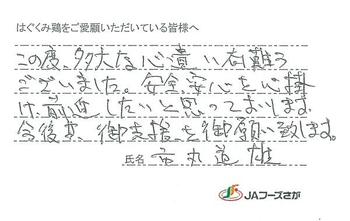 はぐくみ鶏をご愛願いただいている皆様へ
この度、多大な心遣い有難う
ございました。安全、安心を心掛
け、前進したいと思っております。
今後共、御支援を御願い致します。
氏名
JAフーズさが